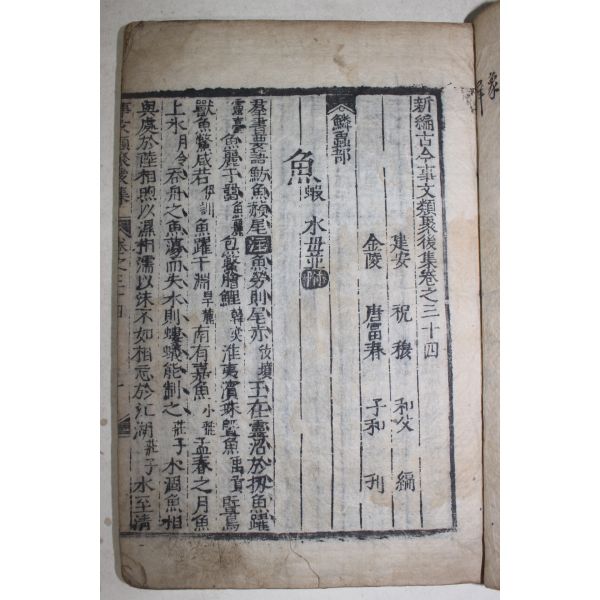 新編古今事文類聚後集卷之三十四
建安 祝穆 和父 編
金陵 唐富春 子和 刊
鱗蟲部
魚 蝦 水母並附
羣書要語魴魚赬尾注魚勞則尾赤汝墳王在靈沼於牣魚躍
靈臺魚麗于罶魚麗包鱉膾鯉韓奕淮夷蠙珠曁魚禹貢曁鳥
獸魚鱉咸若伊訓魚躍于淵旱麓南有嘉魚小雅孟春之月魚
上氷月令吞舟之魚蕩而失水則螻蟻能制之莊子水涸魚相
與處於陸相呴以濕相濡以沫不如相忘於江湖莊子水至清
事文類聚後集 卷之三十四